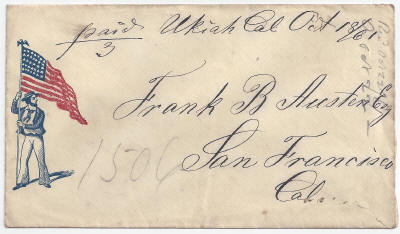 paid Ukiah Cal Oct 18
3
Frank B Austin Esq
San Francisco
Cal
1506